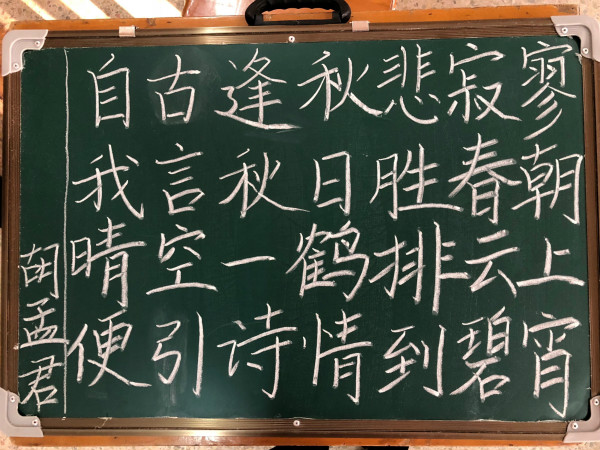 自古逢秋悲寂寥
我言秋日胜春朝
晴空一鹤排云上
便引诗情到碧宵
胡孟君